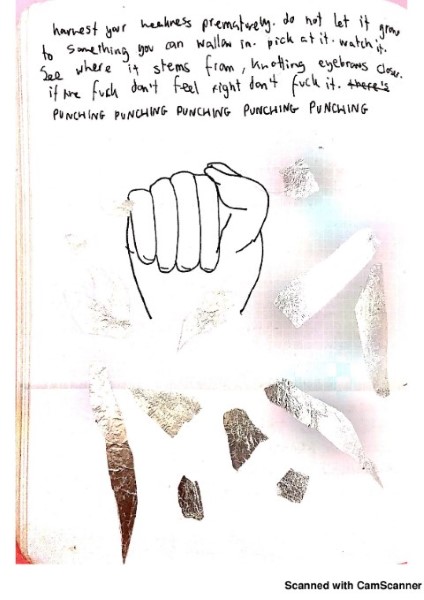 harvest your weakness prematurely. do not let it grow
to something you can wallow in. pick at it. watch it.
See where it stems from, knotting eyebrows closer.
if the fuck don't feel right don't fuck it. there's
PUNCHING PUNCHING PUNCHING PUNCHING PUNCHING
Scanned with CamScanner